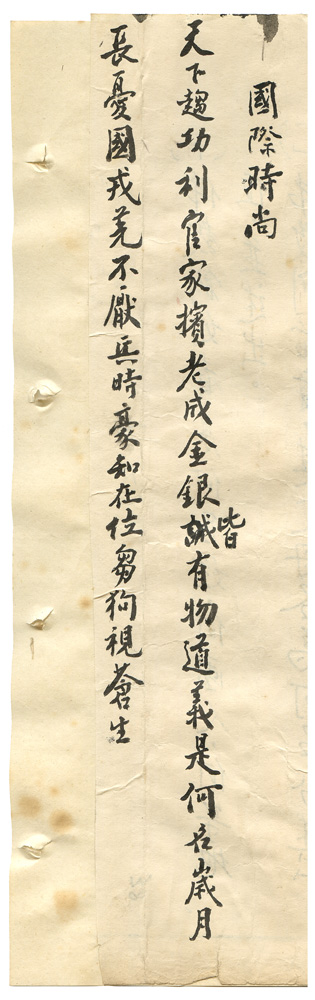 國際時尚
天下趨功利官家擯老成金銀誠皆有物道義是何名歲月
長憂國戎羌不厭兵時豪知在位芻狗視蒼生